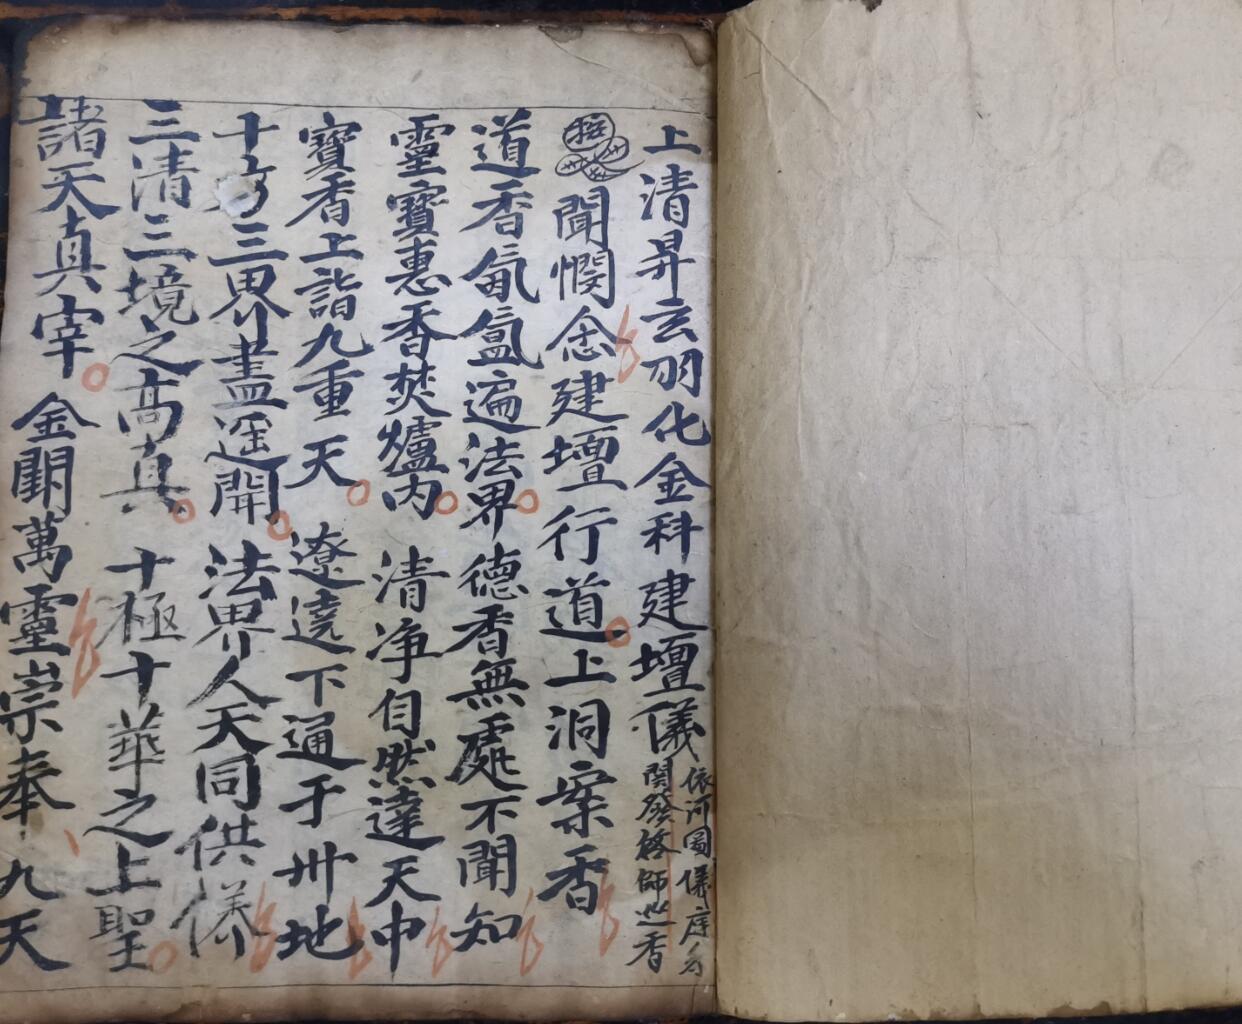 上清昇玄羽化金科建壇儀
依河圖儀
關發啓師巡香
聞憫念建壇行道上洞案香
道香氤氳遍法界德香無處不聞知
靈寶惠香焚爐內清净自然達天中
寶香上詣九重天遼遶下通于卅地
十方三界盡遥聞法界人天同供儀
三清三境之髙真十極十華之上聖
諸天真宰金闕萬靈崇奉九天